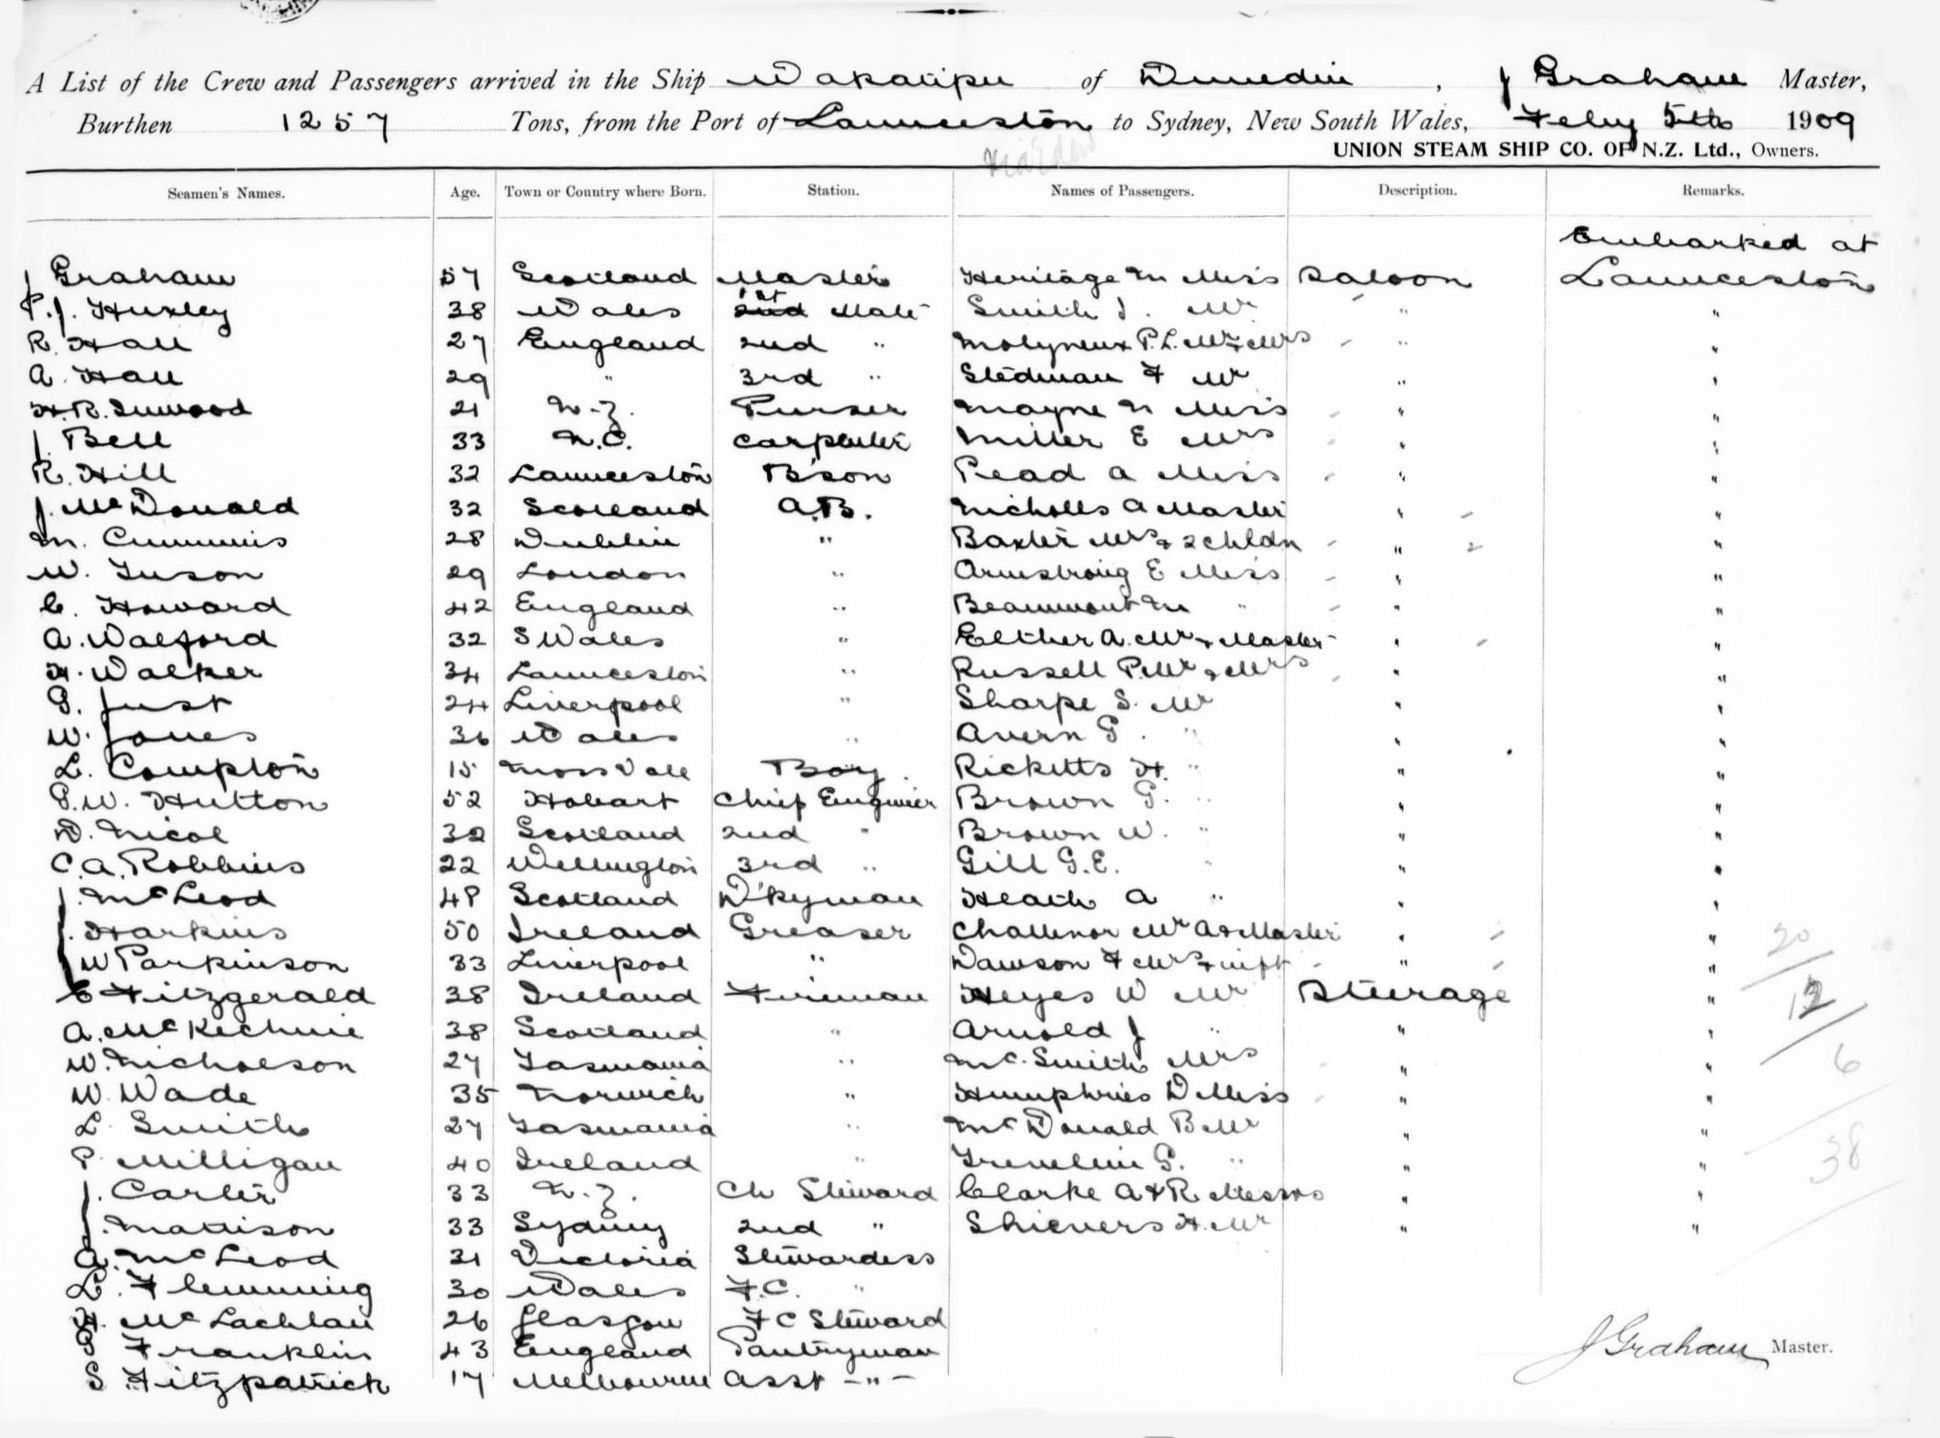 A List of the Crew and Passengers arrived in the Ship Wakatipu of Dunedin, J Graham Master,
Burthen 1257 Tons, from the Port of Launceston to Sydney, New South Wales, Feby 5th 1909
UNION STEAM SHIP CO. OF N.Z. Ltd., Owners.
Seamen's Names. Age. Town or Country where Born. Station. Names of Passengers. Description. Remarks.
Embarked at
J Graham 57 Scotland Master Heritage M Miss Saloon Launceston
P.J. Huxley 38 Wales 2nd 1st Mate Smith J. Mr " "
R. Hall 27 England 2nd " Molyneux P.L. Mr & Mrs " "
A. Hall 29 " 3rd " Stedman F Mr " "
H.R. Inwood 21 N.Z. Purser Mayne N Miss " "
J. Bell 33 N.C. Carpenter Miller E Mrs " "
R. Hill 32 Launceston B'son Pead A Miss " "
J. McDonald 32 Scotland A.B. Nicholls A Master " "
M. Cummins 28 Dublin " Baxter Mrs & 2 Chldn " "
W. Tuson 29 London " Armstrong E Miss " "
C. Howard 42 England " Beaumont M " " "
A. Walford 32 S Wales " Elther A. Mr & Master " "
H. Walker 34 Launceston " Russell P. Mr & Mrs " "
G. Just 24 Liverpool " Sharpe S. Mr " "
W. Jones 36 Wales " Avern G. " " "
L. Compton 15 Moss Vale Boy Ricketts H. " " "
G.W. Hutton 52 Hobart Chief Engineer Brown G. " " "
D. Nicol 32 Scotland 2nd " Brown W. " " "
C.A. Robbins 22 Wellington 3rd " Gill G.E. " " "
J. McLeod 48 Scotland D'kyman Heath A " " "
J. Harkins 50 Ireland Greaser Challenor Mr A & Master " "
W Parkinson 33 Liverpool " Dawson F Mrs & inft " "
E Fitzgerald 38 Ireland Fireman Heyes W Mr Steerage "
A. McKechnie 38 Scotland " Arnold J " " "
W. Nicholson 27 Tasmania " Mc.Smith Mrs " "
W. Wade 35 Norwich " Humphries D Miss " "
L. Smith 27 Tasmania " McDonald B Mr " "
P. Milligan 40 Ireland " G. " " "
J. Carter 33 N.Z. Ch Steward Clarke A & R Messrs " "
J. Mattison 33 Sydney 2nd " Shievers H. Mr " "
A. McLeod 31 Victoria Stewardess
L. Flemming 30 Wales F.C. "
H. McLachlan 26 Glasgow F C Steward
B Franklin 43 England Pantryman
S Fitzpatrick 17 Melbourne Asst -"-
20
12
6
38
J Graham Master.